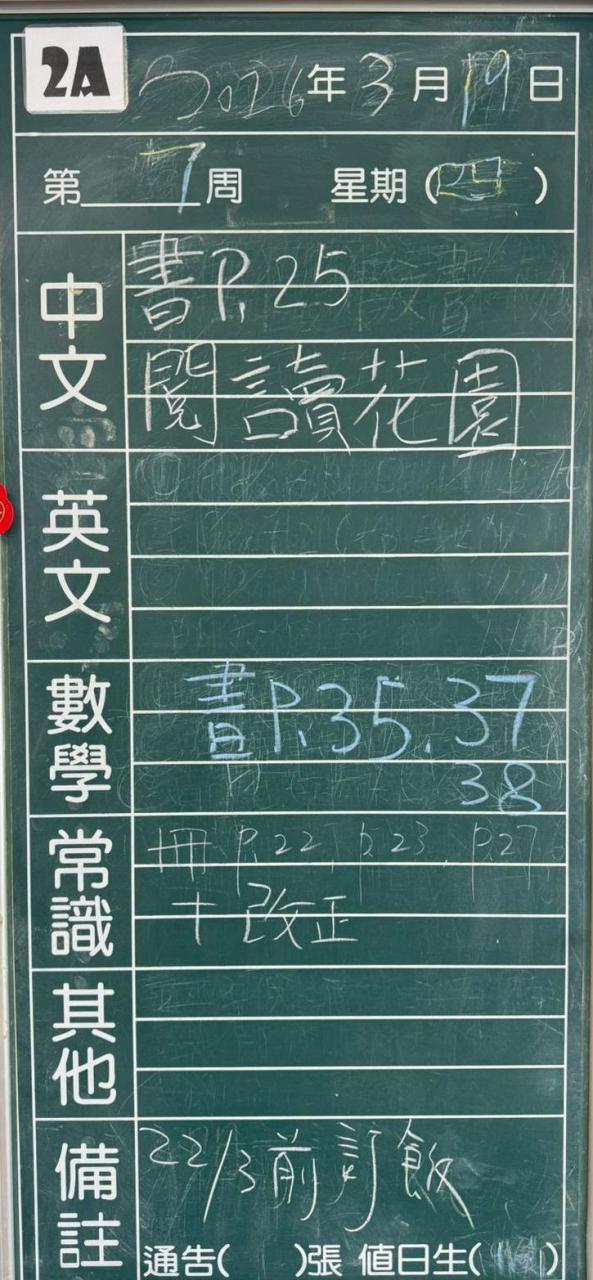 2A
2026年3月19日
第7周 星期(四)
中文
書P.25
閱讀花園
英文
數學
書P.35.37
38
常識
冊 P.22, p.23, p.27
+ 改正
其他
備註
22/3前訂飯
通告( )張 值日生( )